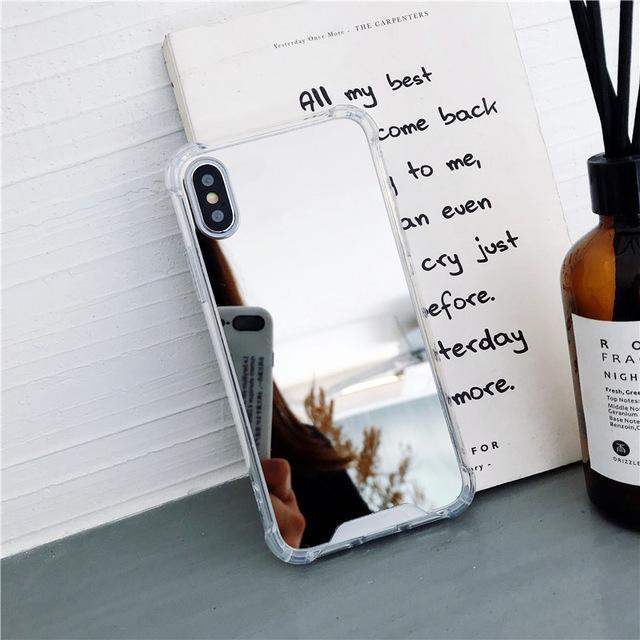 Yesterday Once More - THE CARPENTERS
All my best
come back
to me,
an even
cry just
efore.
terday
more.
FOR
R O
FRA
NIGH
Fresh, Gree
Top Notes:
Middle Note
Geranium
Base Note
Benzoin, C
DRIZZLE